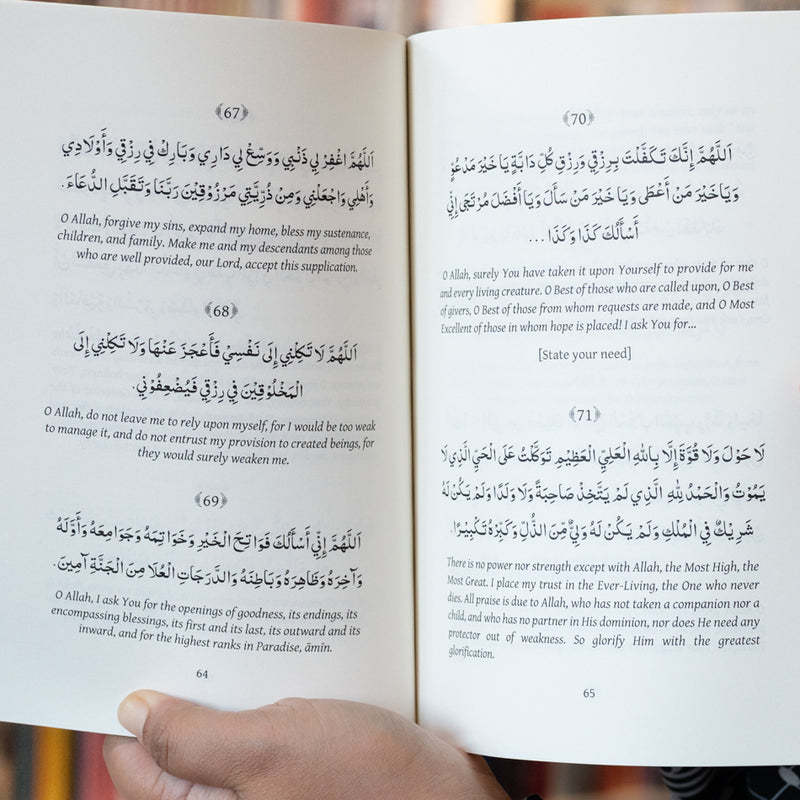 67
اَللّٰهُمَّ اغْفِرْ لِي ذَنْبِي وَوَسِّعْ لِي دَارِي وَبَارِكْ فِي رِزْقِي وَأَوْلَادِي
وَأَهْلِي وَاجْعَلْنِي وَمِنْ ذُرِّيَّتِي مَرْزُوْقِيْنَ رَبَّنَا وَتَقَبَّلِ الدُّعَاءَ.
O Allah, forgive my sins, expand my home, bless my sustenance,
children, and family. Make me and my descendants among those
who are well provided, our Lord, accept this supplication.
68
اَللّٰهُمَّ لَا تَكِلْنِي إِلَى نَفْسِيْ فَأَعْجَزَ عَنْهَا وَلَا تَكِلْنِي إِلَى
الْمَخْلُوْقِيْنَ فِي رِزْقِي فَيُضْعِفُوْنِي.
O Allah, do not leave me to rely upon myself, for I would be too weak
to manage it, and do not entrust my provision to created beings, for
they would surely weaken me.
69
اَللّٰهُمَّ إِنِّي أَسْأَلُكَ فَوَاتِحَ الْخَيْرِ وَخَوَاتِمَهُ وَجَوَامِعَهُ وَأَوَّلَهُ
وَآخِرَهُ وَظَاهِرَهُ وَبَاطِنَهُ وَالدَّرَجَاتِ الْعُلَا مِنَ الْجَنَّةِ آمِينَ.
O Allah, I ask You for the openings of goodness, its endings, its
encompassing blessings, its first and its last, its outward and its
inward, and for the highest ranks in Paradise, āmīn.
64
70
اَللّٰهُمَّ إِنَّكَ تَكَفَّلْتَ بِرِزْقِي وَرِزْقِ كُلِّ دَابَّةٍ يَا خَيْرَ مَدْعُوٍّ
وَيَا خَيْرَ مَنْ أَعْطَى وَيَا خَيْرَ مَنْ سَأَلَ وَيَا أَفْضَلَ مُرْتَجَى إِنِّي
أَسْأَلُكَ كَذَا وَكَذَا ...
O Allah, surely You have taken it upon Yourself to provide for me
and every living creature. O Best of those who are called upon, O Best
of givers, O Best of those from whom requests are made, and O Most
Excellent of those in whom hope is placed! I ask You for...
[State your need]
71
لَا حَوْلَ وَلَا قُوَّةَ إِلَّا بِاللهِ الْعَلِيِّ الْعَظِيْمِ تَوَكَّلْتُ عَلَى الْحَيِّ الَّذِي لَا
يَمُوْتُ وَالْحَمْدُ لِلّٰهِ الَّذِي لَمْ يَتَّخِذْ صَاحِبَةً وَلَا وَلَدًا وَلَمْ يَكُنْ لَهُ
شَرِيْكٌ فِي الْمُلْكِ وَلَمْ يَكُنْ لَهُ وَلِيٌّ مِّنَ الذُّلِّ وَكَبِّرْهُ تَكْبِيْرًا.
There is no power nor strength except with Allah, the Most High, the
Most Great. I place my trust in the Ever-Living, the One who never
dies. All praise is due to Allah, who has not taken a companion nor a
child, and who has no partner in His dominion, nor does He need any
protector out of weakness. So glorify Him with the greatest
glorification.
65